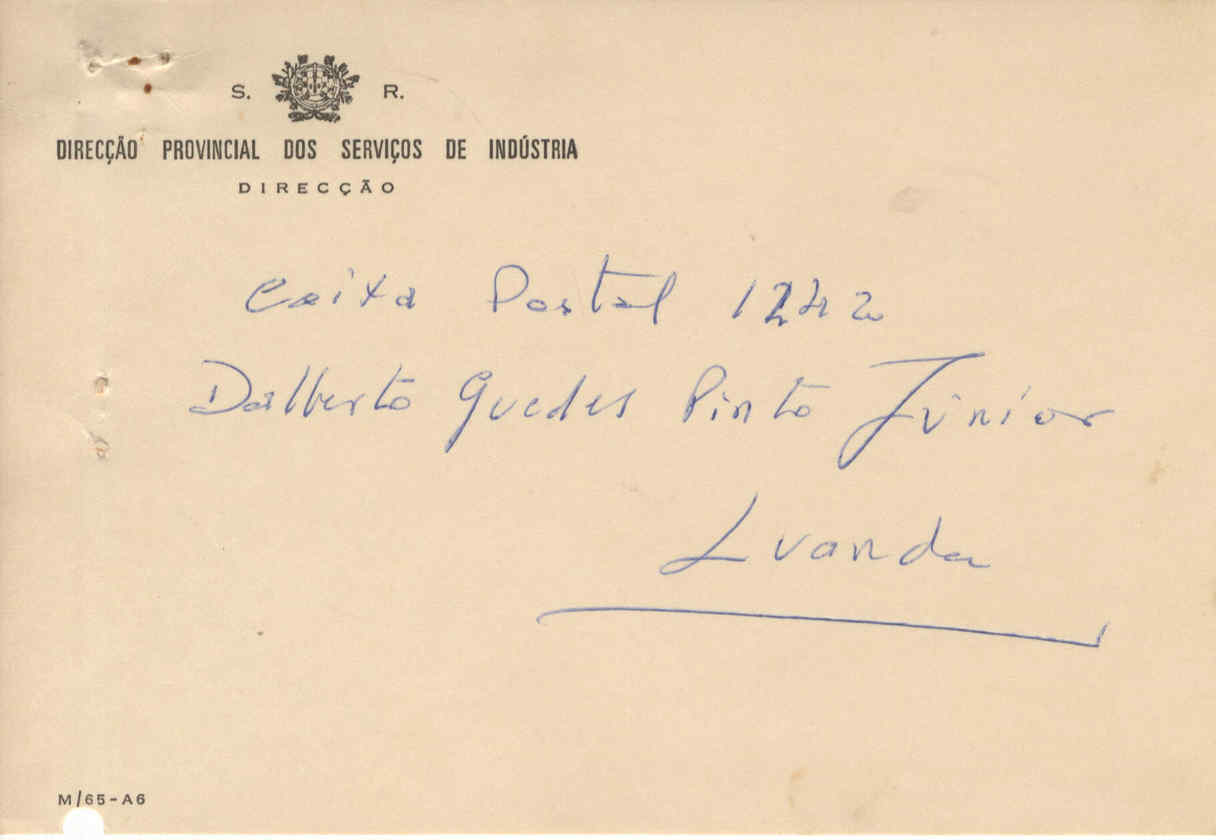 S. R.
DIRECÇÃO PROVINCIAL DOS SERVIÇOS DE INDÚSTRIA
DIRECÇÃO
Caixa Postal 1242
Dalberto Guedes Pinto Júnior
Luanda
M/65-A6